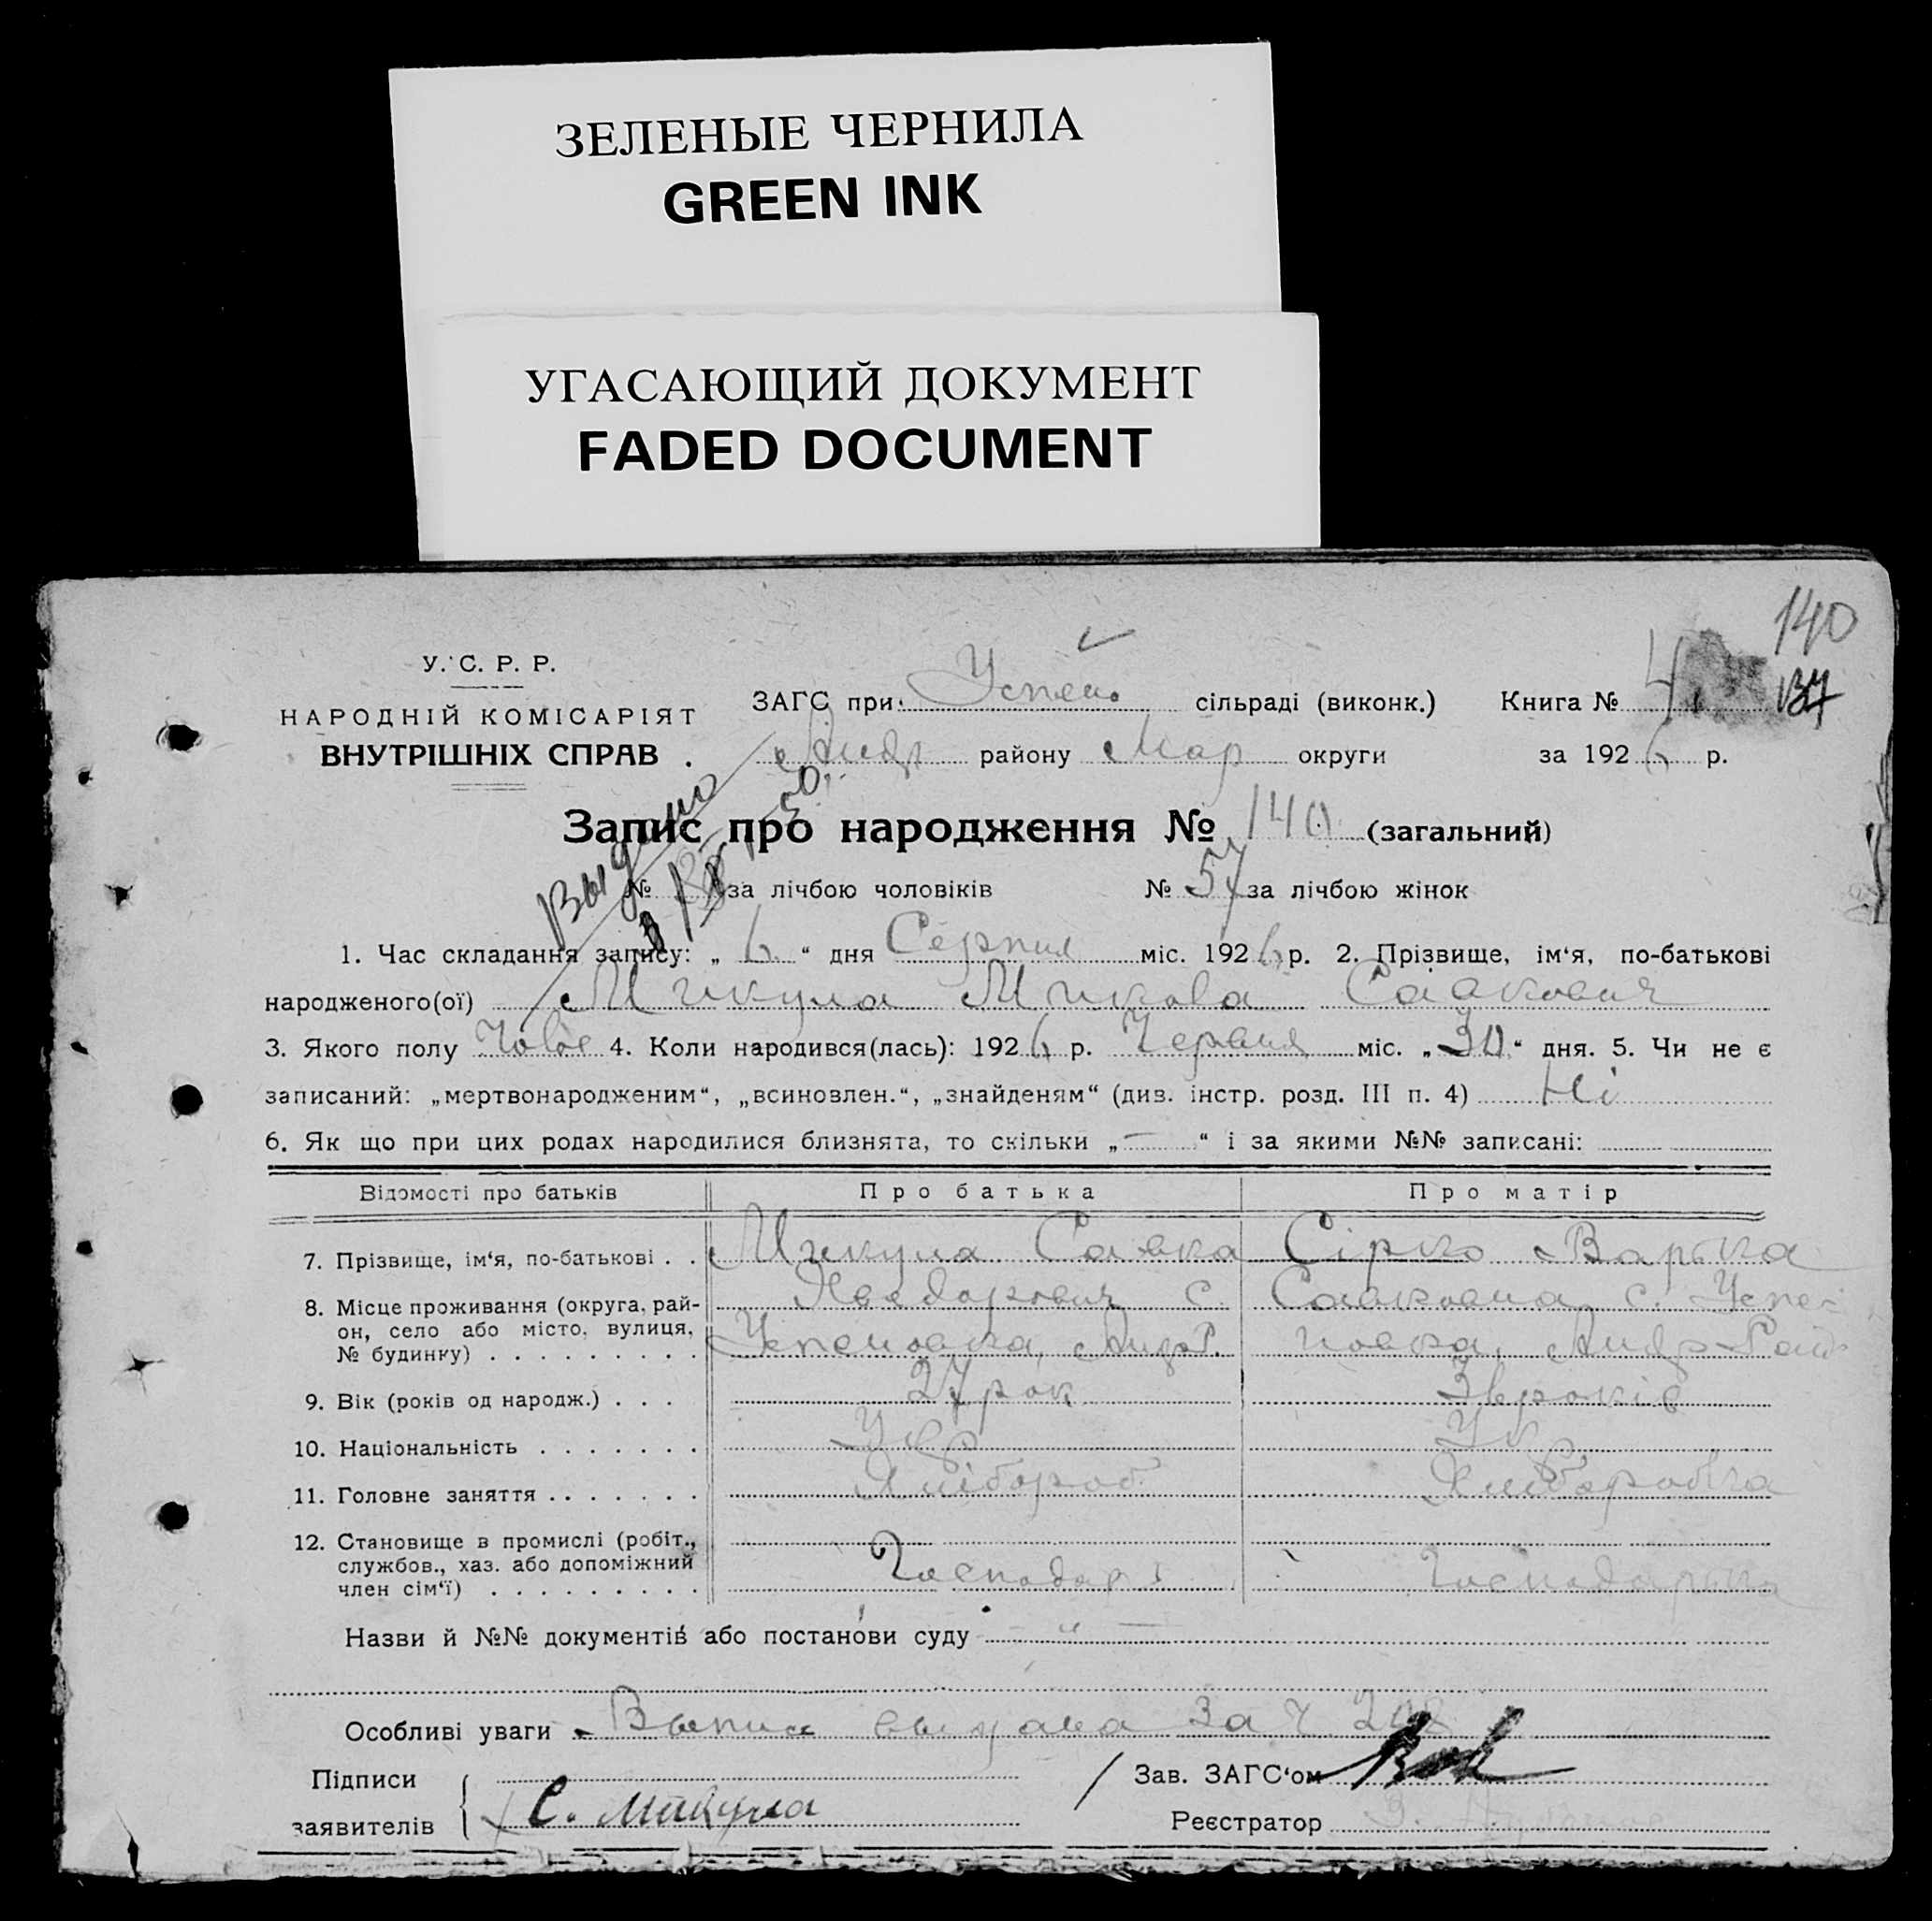 ЗЕЛЕНЫЕ ЧЕРНИЛА
GREEN INK
УГАСАЮЩИЙ ДОКУМЕНТ
FADED DOCUMENT
140
У. С. Р. Р.
НАРОДНІЙ КОМІСАРІЯТ
ВНУТРІШНІХ СПРАВ.
ЗАГС при Успен. сільраді (виконк.) Книга № 4
Андр району Мар округи за 1926 р.
Запис про народження № 140 (загальний)
Выдано
№ за лічбою чоловіків № 57 за лічбою жінок
1. Час складання запису: „ 6 “ дня Серпня міс. 1926 р. 2. Прізвище, ім‘я, по-батькові
народженого(ої) Микула Микола Савкович
3. Якого полу Чолов 4. Коли народився(лась): 1926 р. Червня міс. „30“ дня. 5. Чи не є
записаний: „мертвонародженим“, „всиновлен.“, „знайденям“ (див. інстр. розд. III п. 4) Ні
6. Як що при цих родах народилися близнята, то скільки „ — “ і за якими №№ записані:
Відомості про батьків Про батька Про матір
7. Прізвище, ім‘я, по-батькові . . Микула Савка Сірко Варька
8. Місце проживання (округа, рай- с. Савковна с. Успе-
он, село або місто, вулиця, Успеновка, Андр. новка, Андр Рай
№ будинку) . . . . . . . . .
9. Вік (років од народж.) . . . 27 рок 36 років
10. Національність . . . . . . . Укр Укр
11. Головне заняття . . . . . . . Хлібороб Хліборобка
12. Становище в промислі (робіт.,
службов., хаз. або допоміжний Господар Господарька
член сім‘ї) . . . . . . . . .
Назви й №№ документів або постанови суду — „ —
Особливі уваги Выпис выдана за №
Підписи Зав. ЗАГС‘ом
заявителів С. Микула Реєстратор